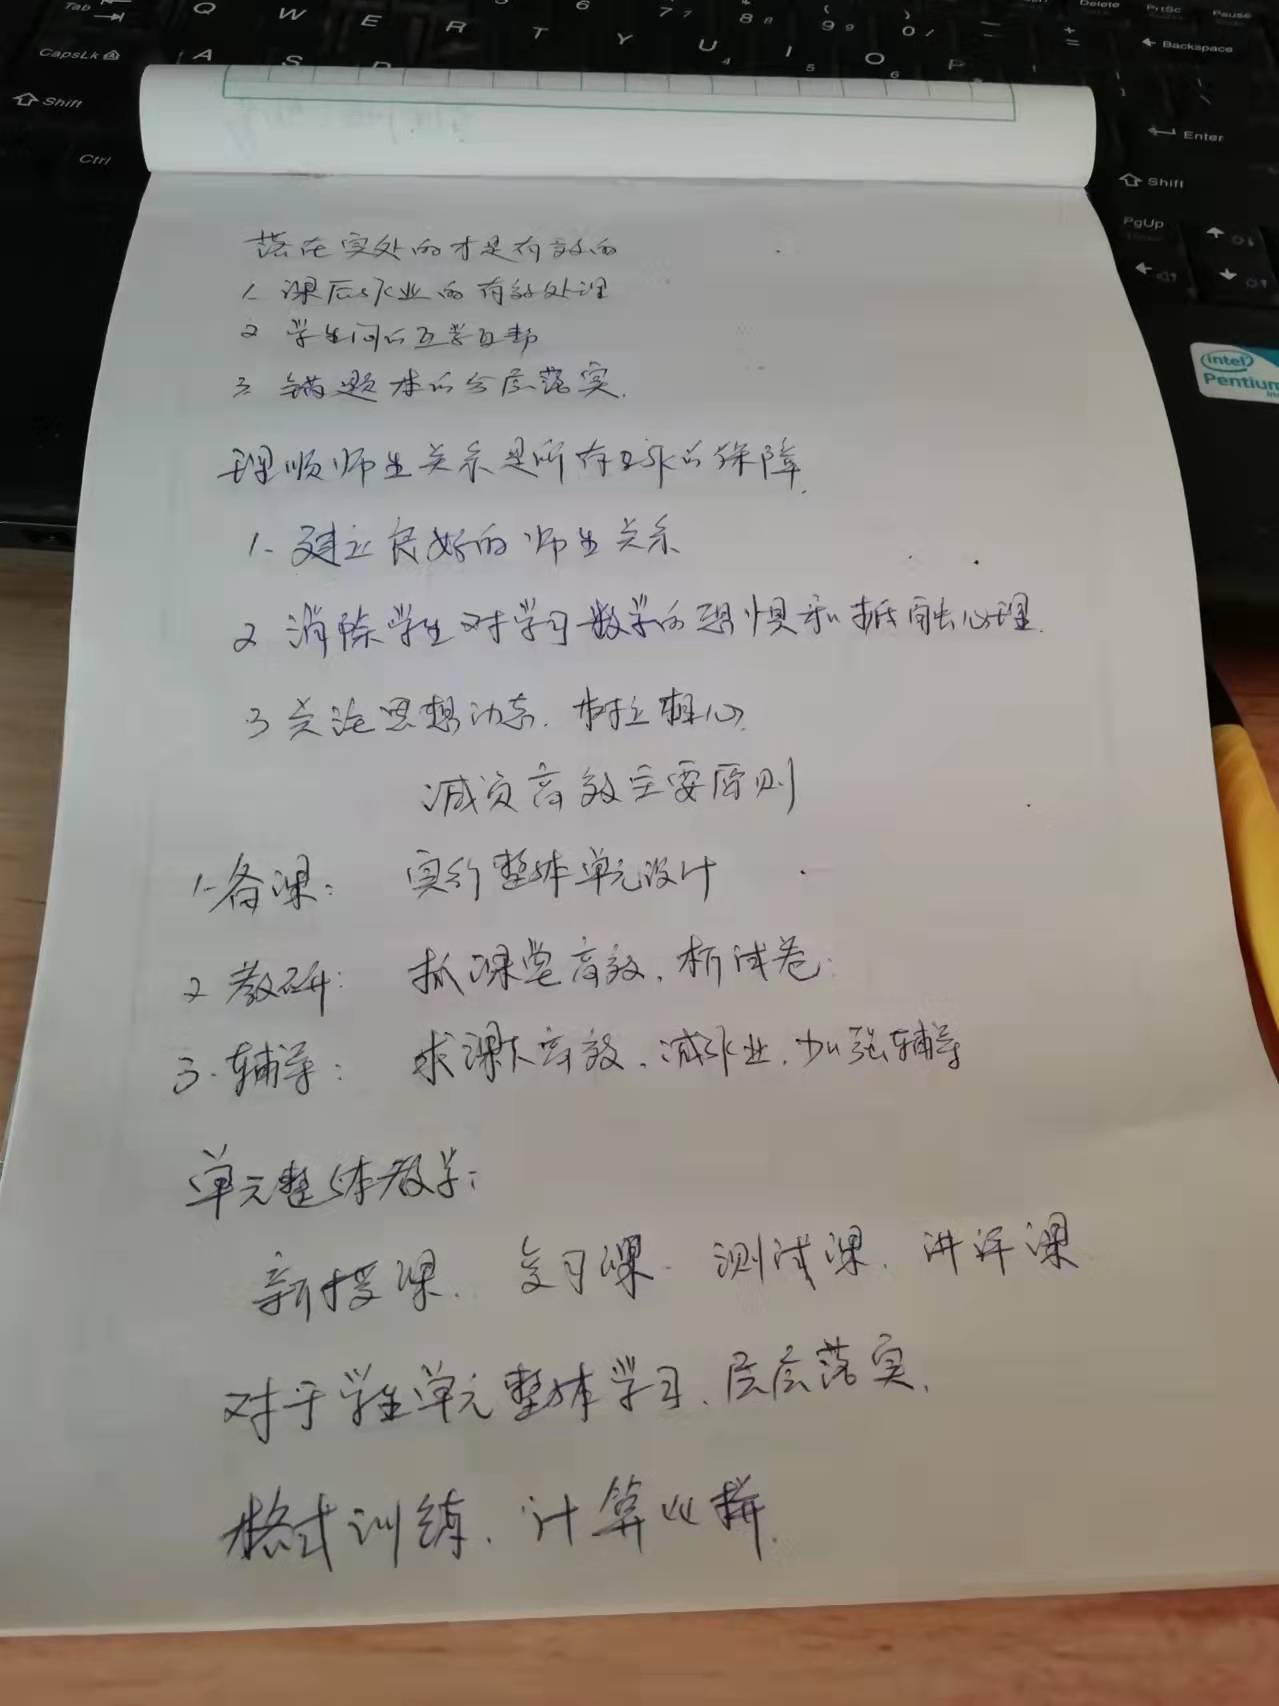 Tab
Q W E R T Y U I O P
6 7 7 8 8 9 9 0
Delete PrtSc Pause
Backspace
CapsLk A S
4 5 6
Shift
Enter
Ctrl
Shift
PgUp
intel
Pentium
落在实处的才是有效的
1. 课后作业的有效处理
2 学生间的互学互帮
3. 错题本的分层落实.
理顺师生关系是所有工作的保障.
1. 建立良好的师生关系
2 消除学生对学习数学的恐惧和抵触心理.
3 关注思想动态. 树立信心.
减负高效主要原则
1. 备课: 实行整体单元设计
2 教研: 抓课堂高效. 析试卷.
3. 辅导: 求课下高效. 减作业. 加强辅导
单元整体教学:
新授课. 复习课. 测试课. 讲评课
对于学生单元整体学习. 层层落实.
格式训练. 计算必拼.